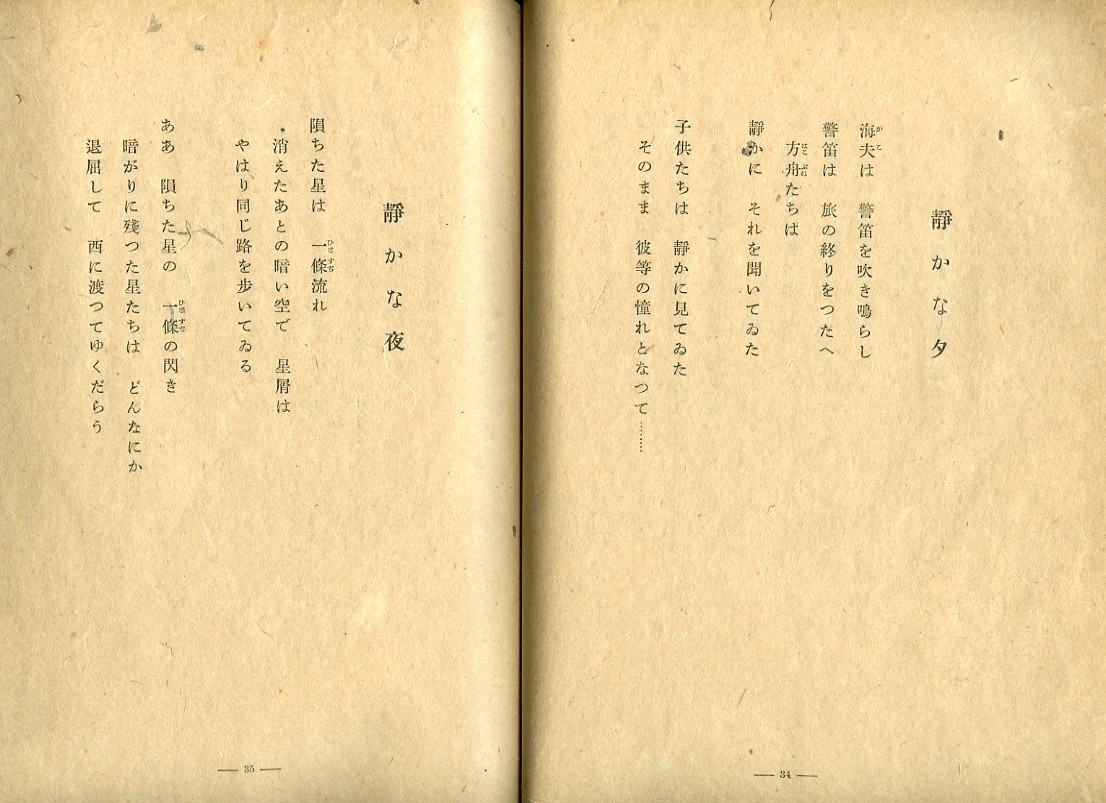 靜かな夕
海夫は　警笛を吹き鳴らし
警笛は　旅の終りをつたへ
方舟たちは
靜かに　それを聞いてゐた
子供たちは　靜かに見てゐた
そのまま　彼等の憧れとなつて………
― 34 ―
靜かな夜
隕ちた星は　一條流れ
消えたあとの暗い空で　星屑は
やはり同じ路を歩いてゐる
ああ　隕ちた星の　一條の閃き
暗がりに殘つた星たちは　どんなにか
退屈して　西に渡つてゆくだらう
― 35 ―